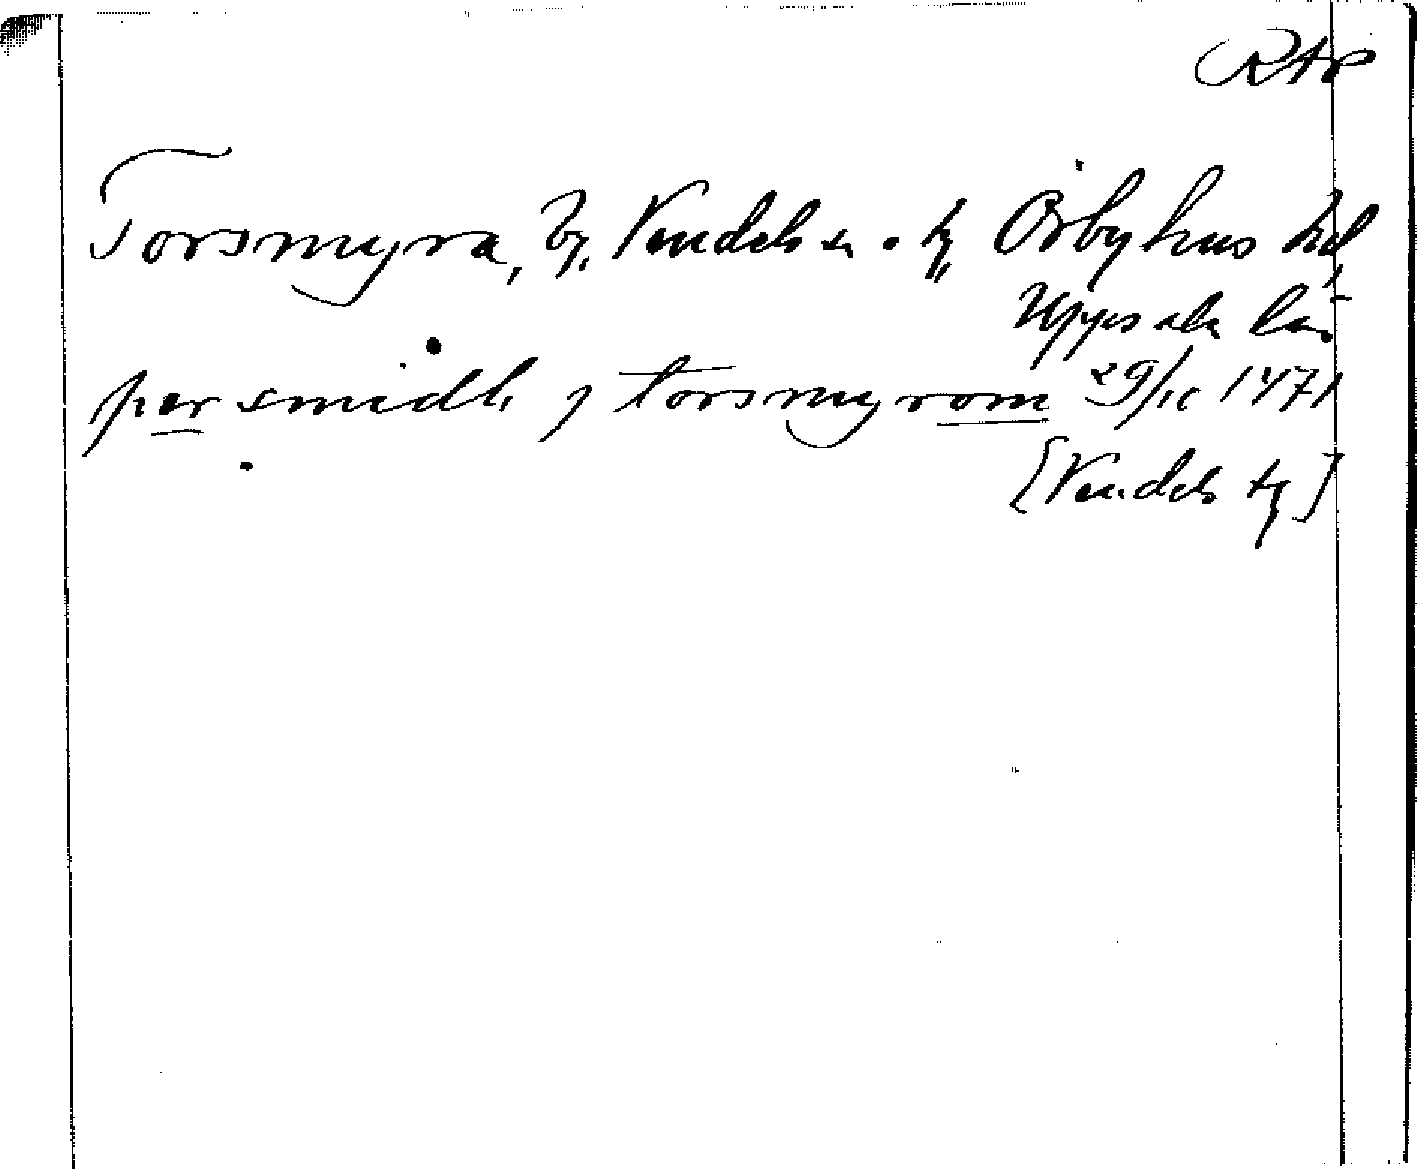 RAp
Torsmyra, by, Vendels sn o. ky Örbyhus hd,
Uppsala län
per smidh j torsmyrom 29/10 1471
[Vendels ky]